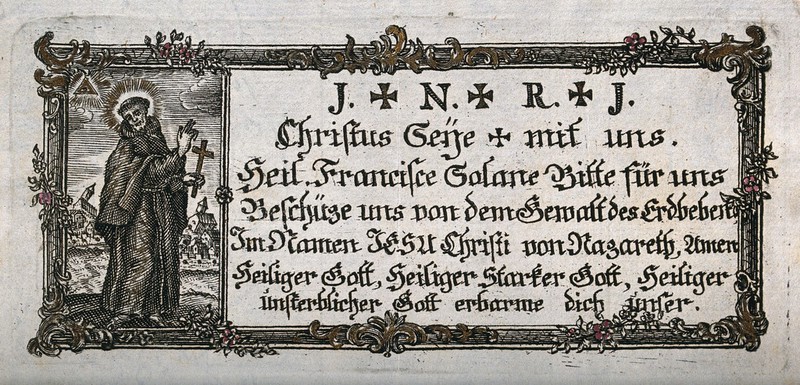 J. ✠ N. ✠ R. ✠ J.
Christus Seÿe ✠ mit uns.
Heil. Francisce Solane Bitte für uns
Beschüze uns von dem Gewalt des Erdbebens
Im Namen JESU Christi von Nazareth, Amen
Heiliger Gott, Heiliger Starker Gott, Heiliger
unsterblicher Gott erbarme dich unser.